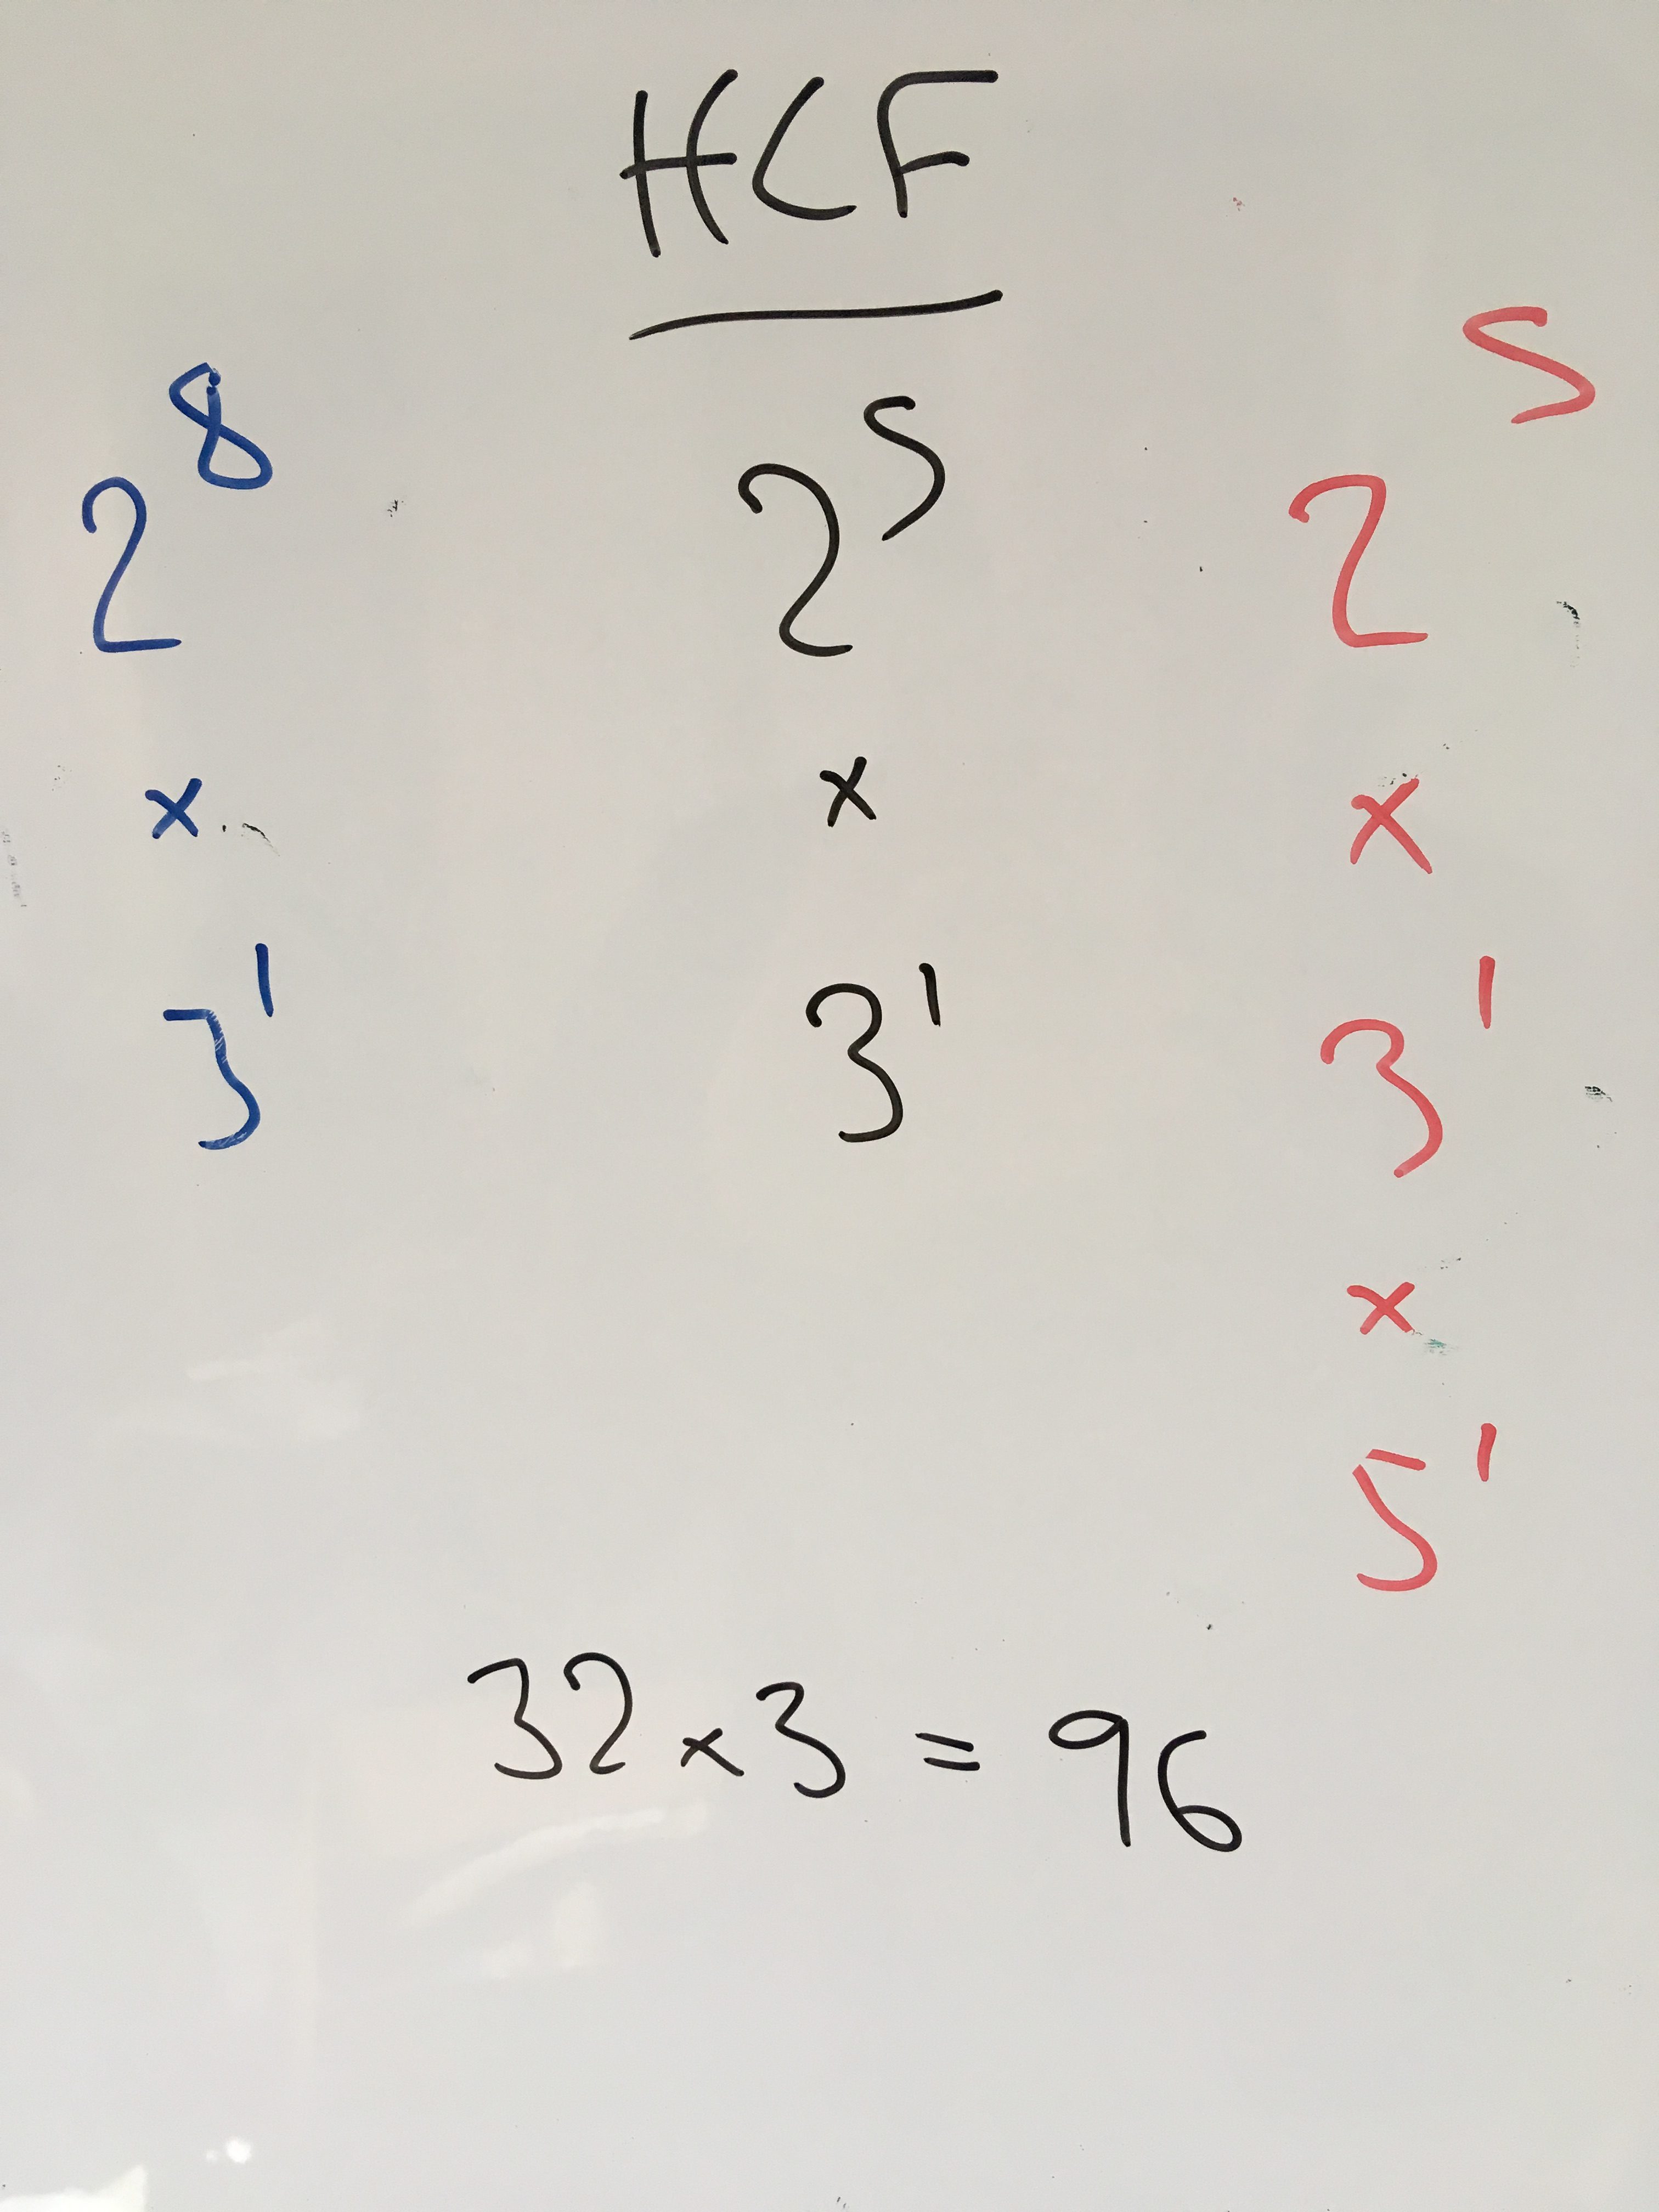 HCF
2⁸ 2⁵ 2⁵
x x x
3¹ 3¹ 3¹
x
5¹
32 x 3 = 96